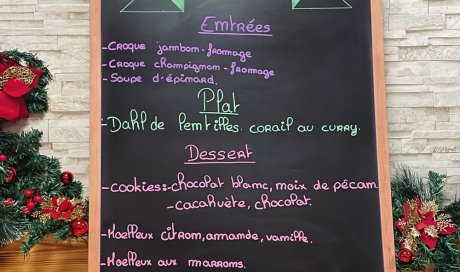 Entrées
- Croque jambon-fromage
- Croque champignon-fromage
- Soupe d'épinard.
Plat
- Dahl de lentilles corail au curry.
Dessert
- cookies:- chocolat blanc, noix de pécan
- cacahuète, chocolat.
- Moelleux citron, amande, vanille.
- Moelleux aux marrons.